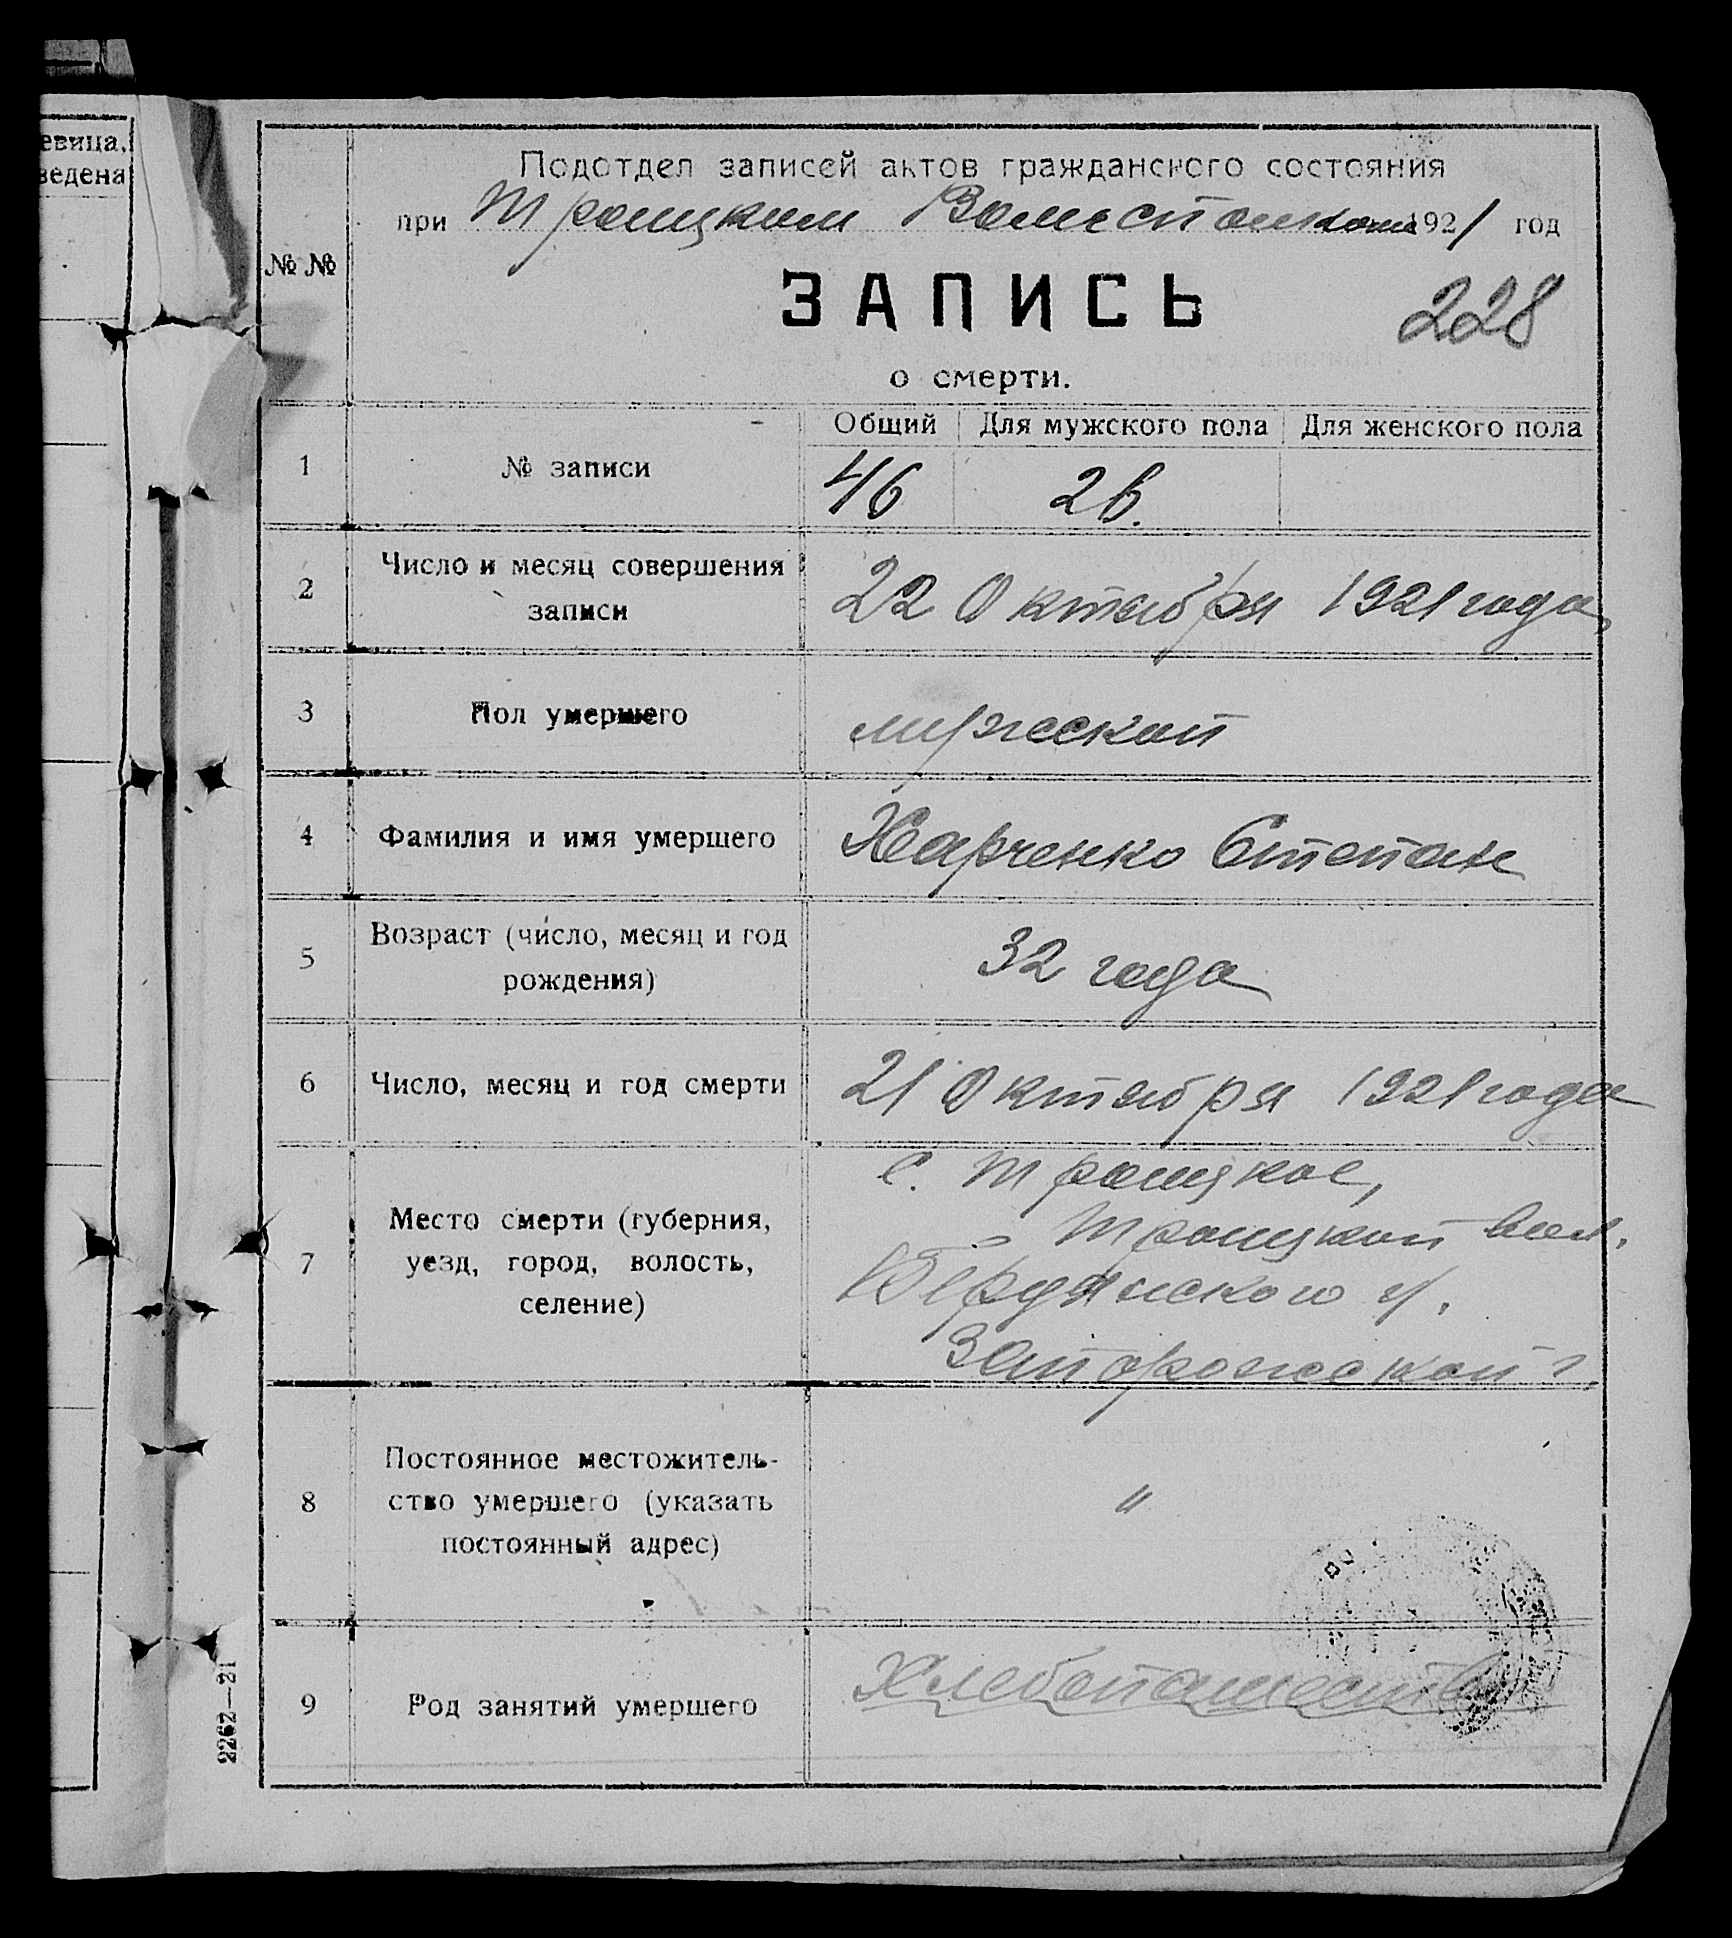 евица,
ведена
Подотдел записей актов гражданского состояния
при Троицком Волисполкоме 1921 год
№ №
ЗАПИСЬ
228
о смерти.
Общий Для мужского пола Для женского пола
1 № записи 46 26.
2 Число и месяц совершения записи 22 Октября 1921 года
3 Пол умершего мужской
4 Фамилия и имя умершего Харченко Степан
5 Возраст (число, месяц и год рождения) 32 года
6 Число, месяц и год смерти 21 Октября 1921 года
7 Место смерти (губерния, уезд, город, волость, селение)
с. Троицкое,
Троицкой вол.
Бердянского у.
Запорожской г.
8 Постоянное местожительство умершего (указать постоянный адрес) "
9 Род занятий умершего Хлебопашество
2262—21